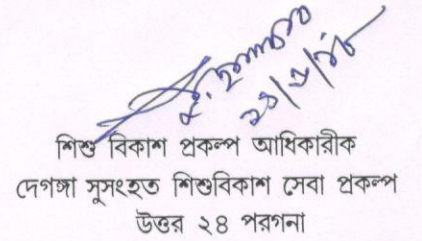 শিশু বিকাশ প্রকল্প আধিকারীক
দেগঙ্গা সুসংহত শিশুবিকাশ সেবা প্রকল্প
উত্তর ২৪ পরগনা